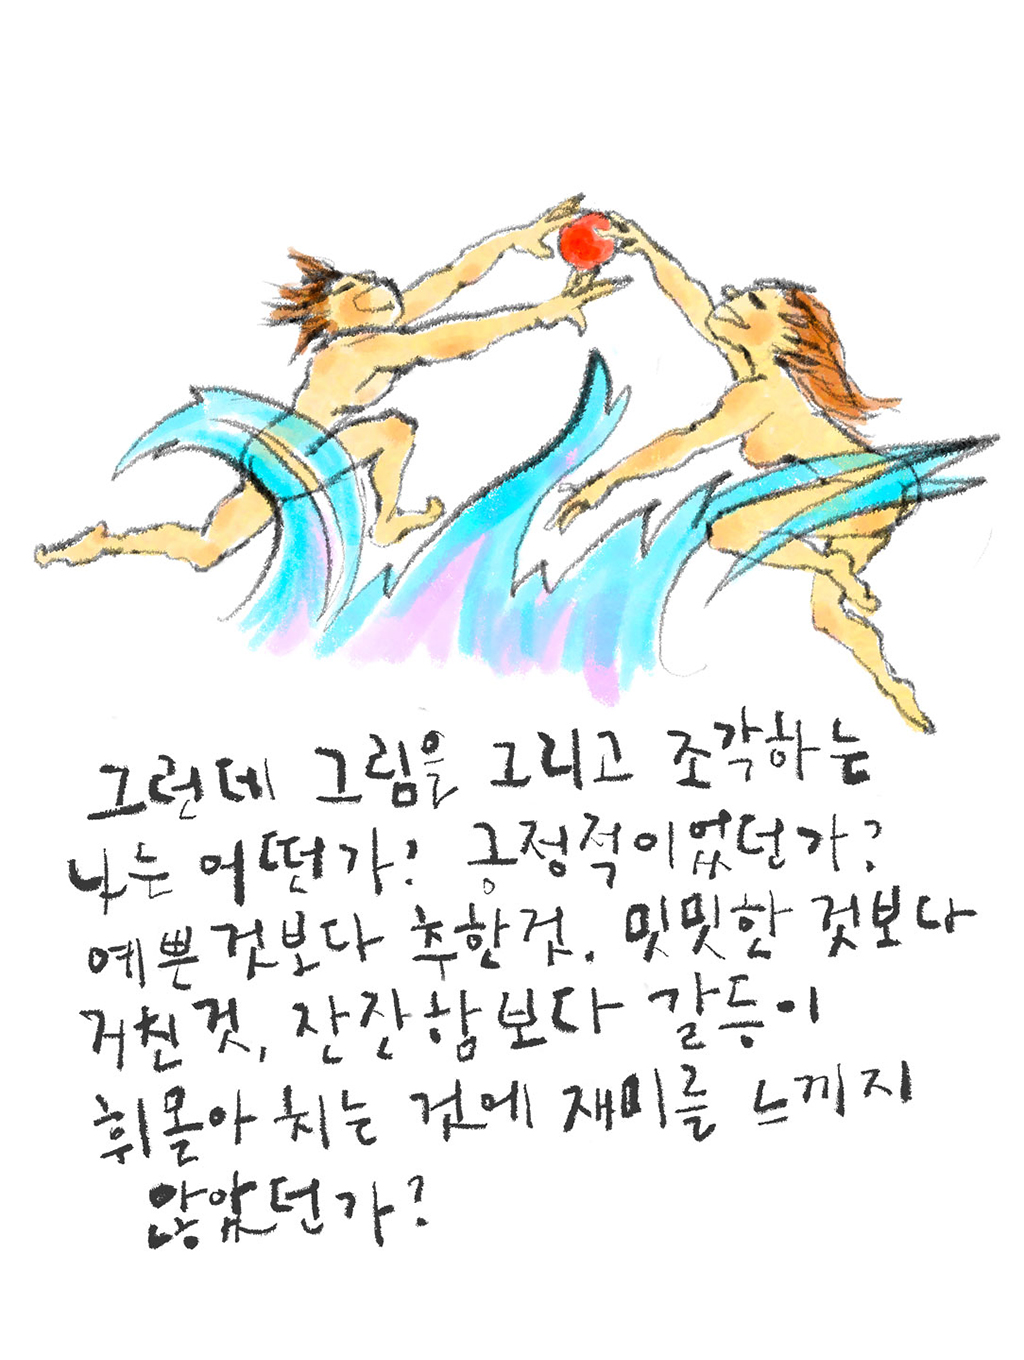 그런데 그림을 그리고 조각하는
나는 어떤가? 긍정적이었던가?
예쁜것보다 추한것. 밋밋한 것보다
거친것, 잔잔함보다 갈등이
휘몰아 치는 것에 재미를 느끼지
않았던가?